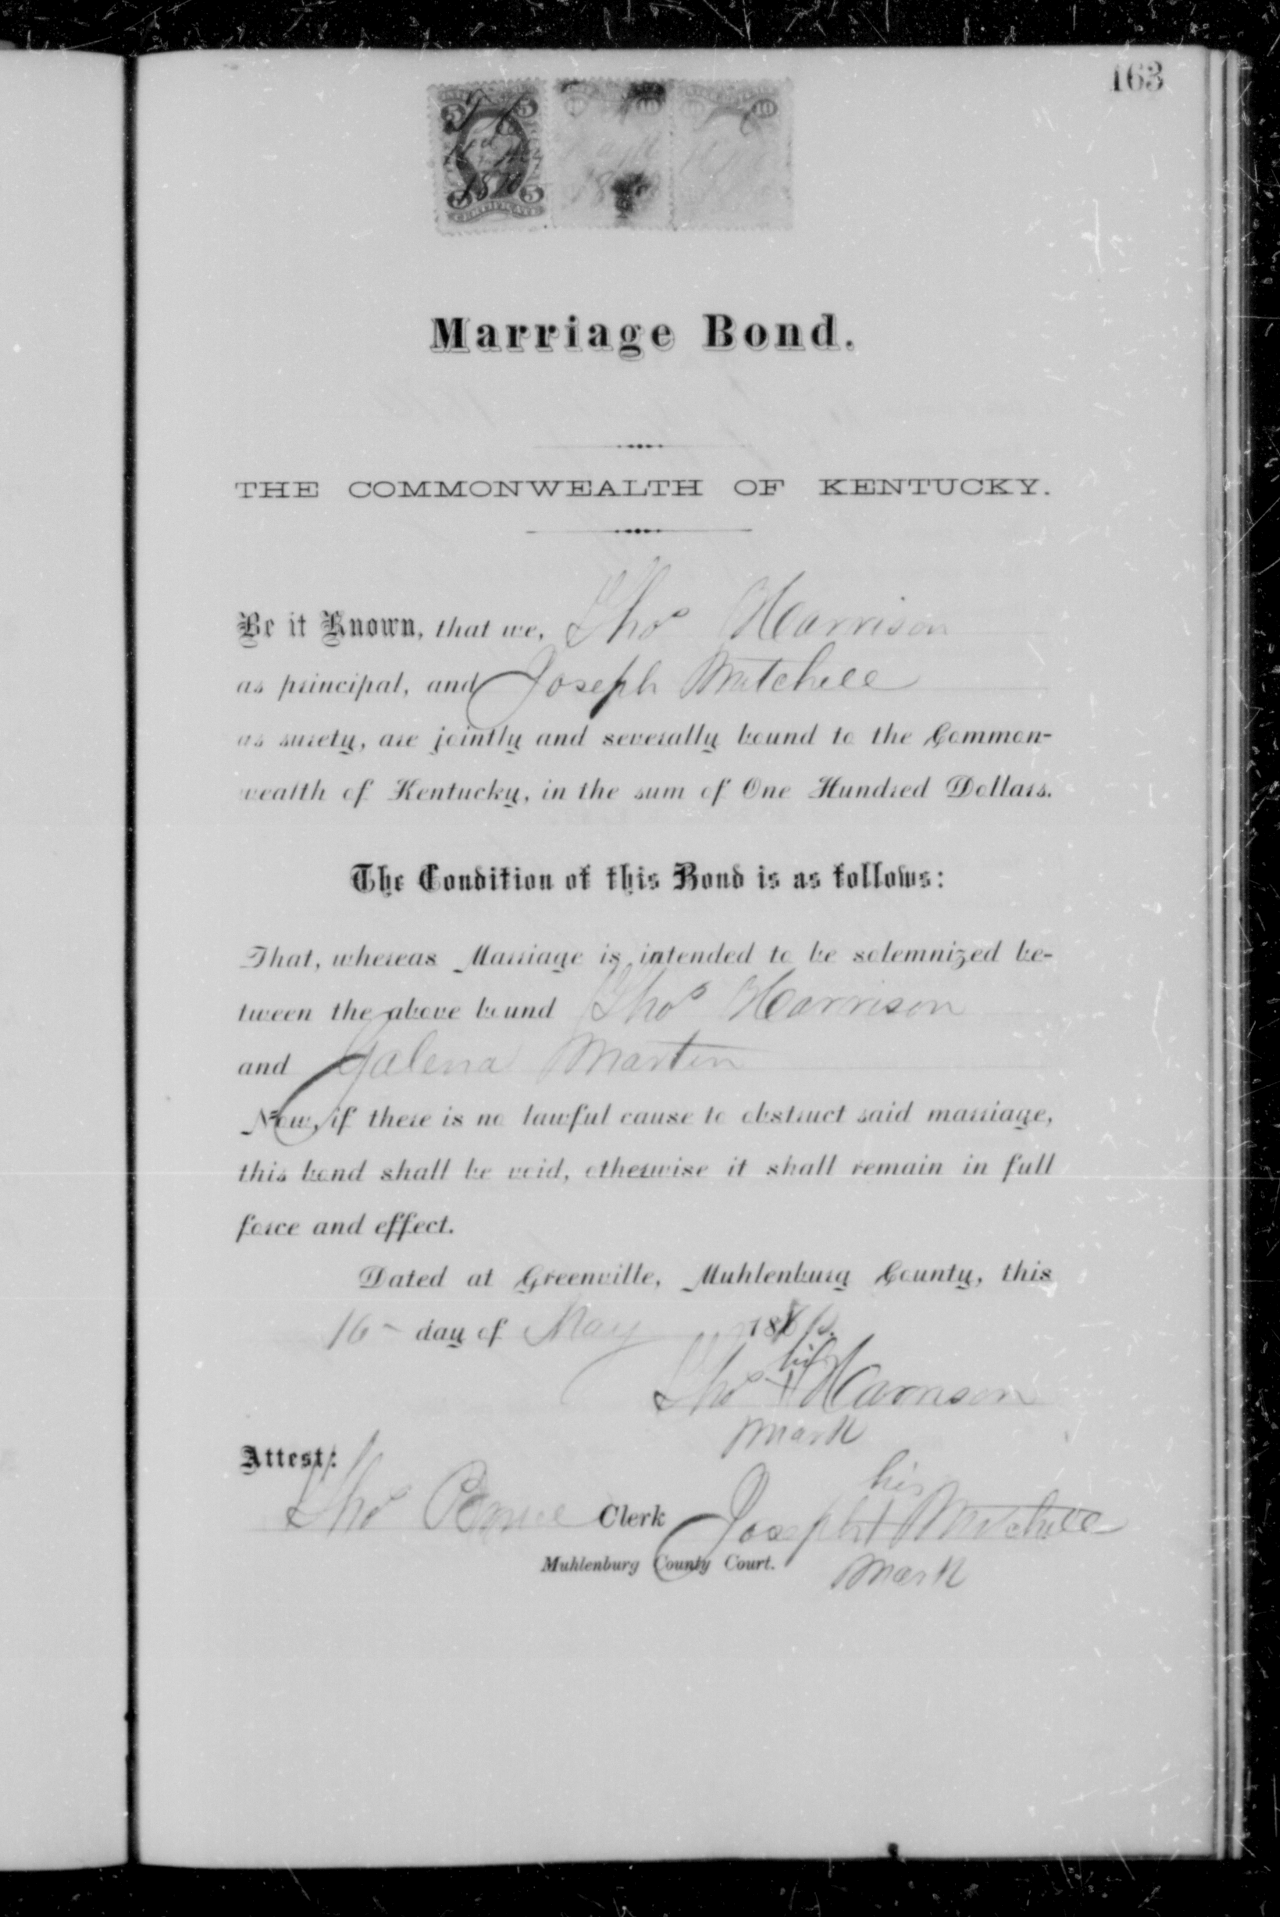 163
5 5
1870
5 5
CERTIFICATE
10
10
Marriage Bond.
THE COMMONWEALTH OF KENTUCKY.
Be it Known, that we, Thos Harrison
as principal, and Joseph Mitchell
as surety, are jointly and severally bound to the Common-
wealth of Kentucky, in the sum of One Hundred Dollars.
The Condition of this Bond is as follows:
That, whereas Marriage is intended to be solemnized be-
tween the above bound Thos Harrison
and Galena Martin
Now, if there is no lawful cause to obstruct said marriage,
this bond shall be void, otherwise it shall remain in full
force and effect.
Dated at Greenville, Muhlenburg County, this
16 - day of May 1870.
his
Thos + Harrison
mark
Attest:
his
Thos Clerk Joseph + Mitchell
Muhlenburg County Court.
mark